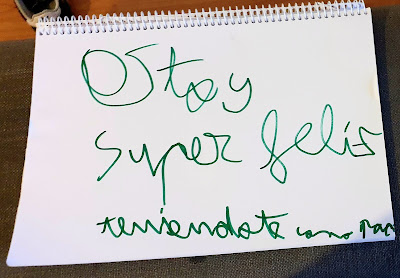 Estoy
super felis
teniendote como Pap